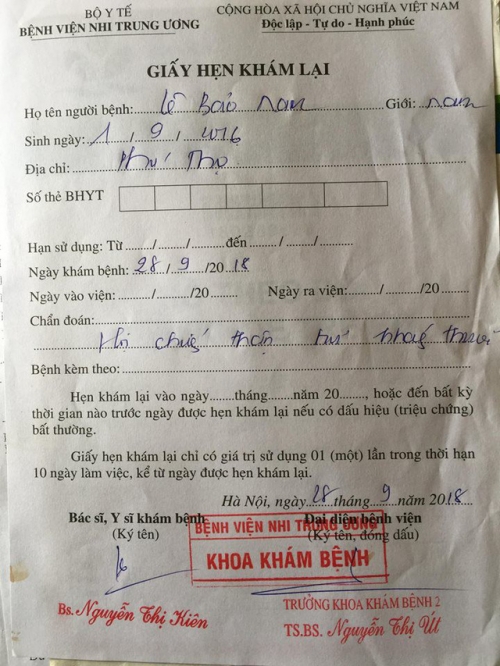 BỘ Y TẾ
BỆNH VIỆN NHI TRUNG ƯƠNG
CỘNG HÒA XÃ HỘI CHỦ NGHĨA VIỆT NAM
Độc lập - Tự do - Hạnh phúc
GIẤY HẸN KHÁM LẠI
Họ tên người bệnh: Lê Bảo Nam Giới: nam
Sinh ngày: 1/9/2016
Địa chỉ: Phú Thọ
Số thẻ BHYT
Hạn sử dụng: Từ......./......./.........đến......./......./.........
Ngày khám bệnh: 28/9/2018
Ngày vào viện:......./......./20....... Ngày ra viện:......./......./20.......
Chẩn đoán:
Hội chứng thận hư kháng thuốc
Bệnh kèm theo:
Hẹn khám lại vào ngày......tháng......năm 20......, hoặc đến bất kỳ
thời gian nào trước ngày được hẹn khám lại nếu có dấu hiệu (triệu chứng)
bất thường.
Giấy hẹn khám lại chỉ có giá trị sử dụng 01 (một) lần trong thời hạn
10 ngày làm việc, kể từ ngày được hẹn khám lại.
Hà Nội, ngày 28 tháng 9 năm 2018
Bác sĩ, Y sĩ khám bệnh
(Ký tên)
Đại diện bệnh viện
(Ký tên, đóng dấu)
BỆNH VIỆN NHI TRUNG ƯƠNG
KHOA KHÁM BỆNH
Bs. Nguyễn Thị Kiên
TRƯỞNG KHOA KHÁM BỆNH 2
TS.BS. Nguyễn Thị Út